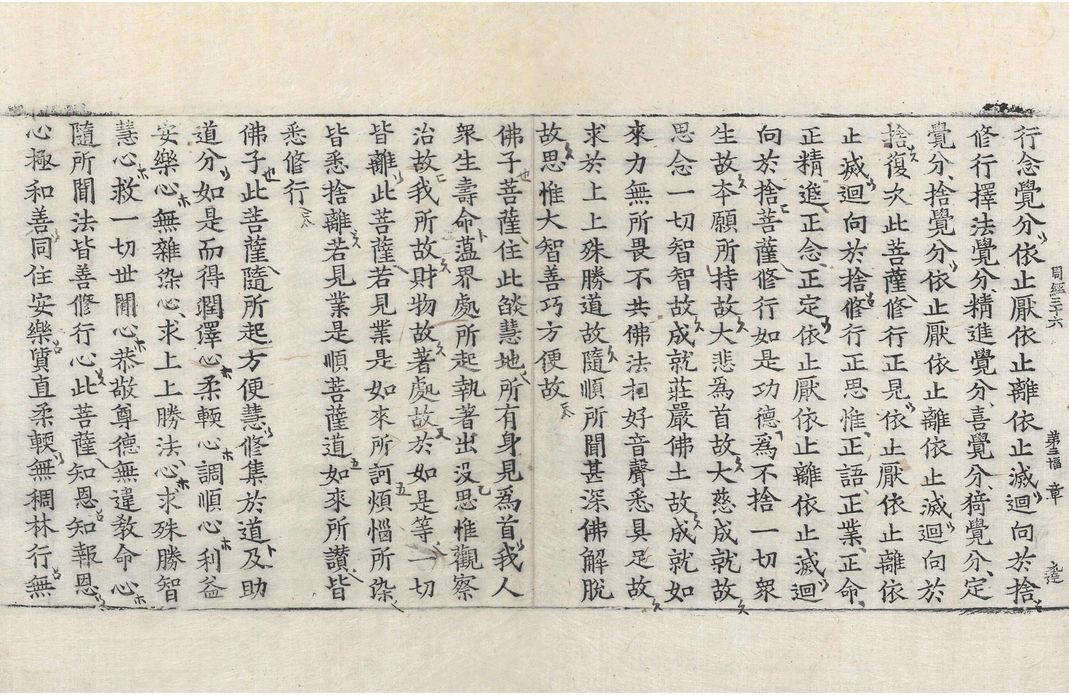 周經三十六　章
行念覺分依止厭依止離依止滅迴向於捨
修行擇法覺分精進覺分喜覺分猗覺分定
覺分捨覺分依止厭依止離依止滅迴向於
捨復次此菩薩修行正見依止厭依止離依
止滅迴向於捨修行正思惟正語正業正命
正精進正念正定依止厭依止離依止滅迴
向於捨菩薩修行如是功德為不捨一切衆
生故本願所持故大悲為首故大慈成就故
思念一切智智故成就莊嚴佛土故成就如
來力無所畏不共佛法相好音聲悉具足故
求於上上殊勝道故隨順所聞甚深佛解脫
故思惟大智善巧方便故
佛子菩薩住此燄慧地所有身見為首我人
衆生壽命蘊界處所起執著出沒思惟觀察
治故我所故財物故著處故於如是等一切
皆離此菩薩若見業是如來所訶煩惱所染
皆悉捨離若見業是順菩薩道如來所讚皆
悉修行
佛子此菩薩隨所起方便慧修集於道及助
道分如是而得潤澤心柔輭心調順心利益
安樂心無雜染心求上上勝法心求殊勝智
慧心救一切世間心恭敬尊德無違教命心
隨所聞法皆善修行心此菩薩知恩知報恩
心極和善同住安樂質直柔輭無稠林行無